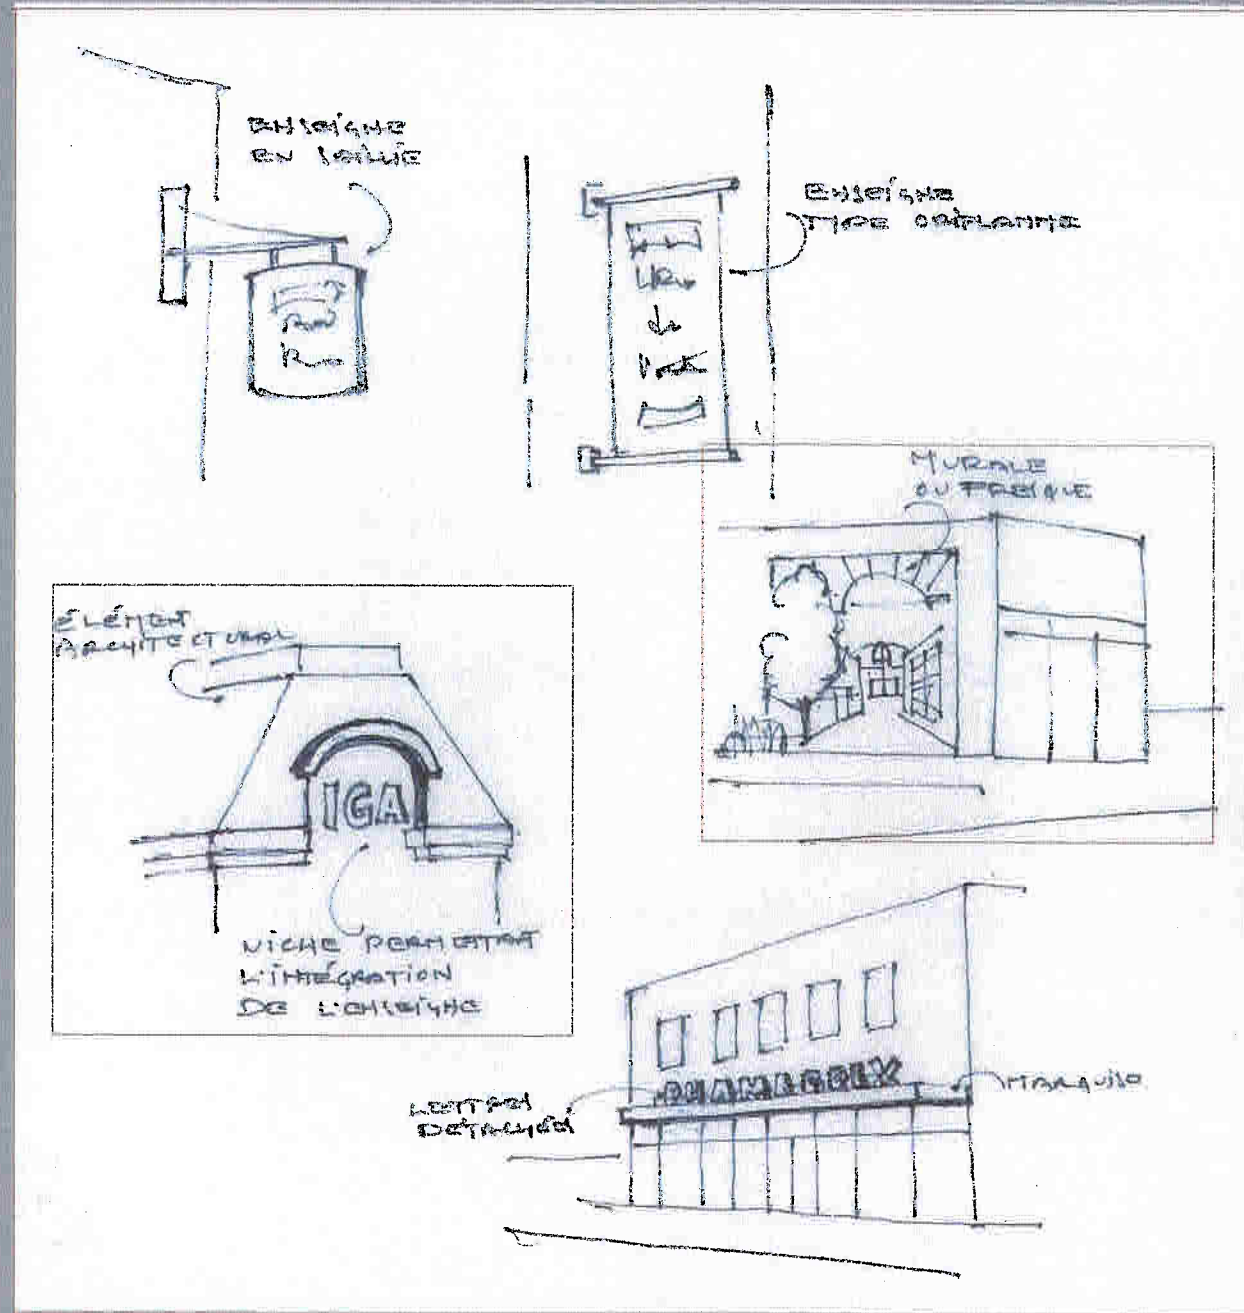 ENSEIGNE
EN SAILLIE
ENSEIGNE
TYPE ORIFLAMME
MURALE
OU FRESQUE
ÉLÉMENT
ARCHITECTURAL
IGA
NICHE PERMETTANT
L'INTÉGRATION
DE L'ENSEIGNE
LETTRES
DÉTACHÉES
MARQUISE